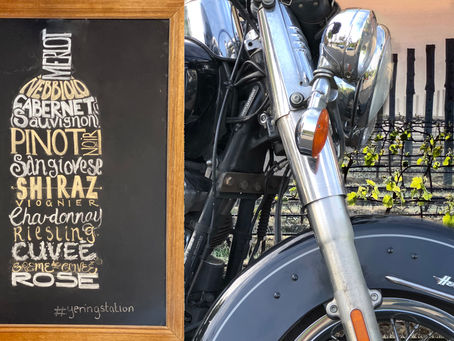 MERLOT
NEBBIOLO
CABERNET
Sauvignon
PINOT NOIR
Sangiovese
SHIRAZ
VIOGNIER
Chardonnay
Riesling
CUVEE
ROSE
#yeringstation